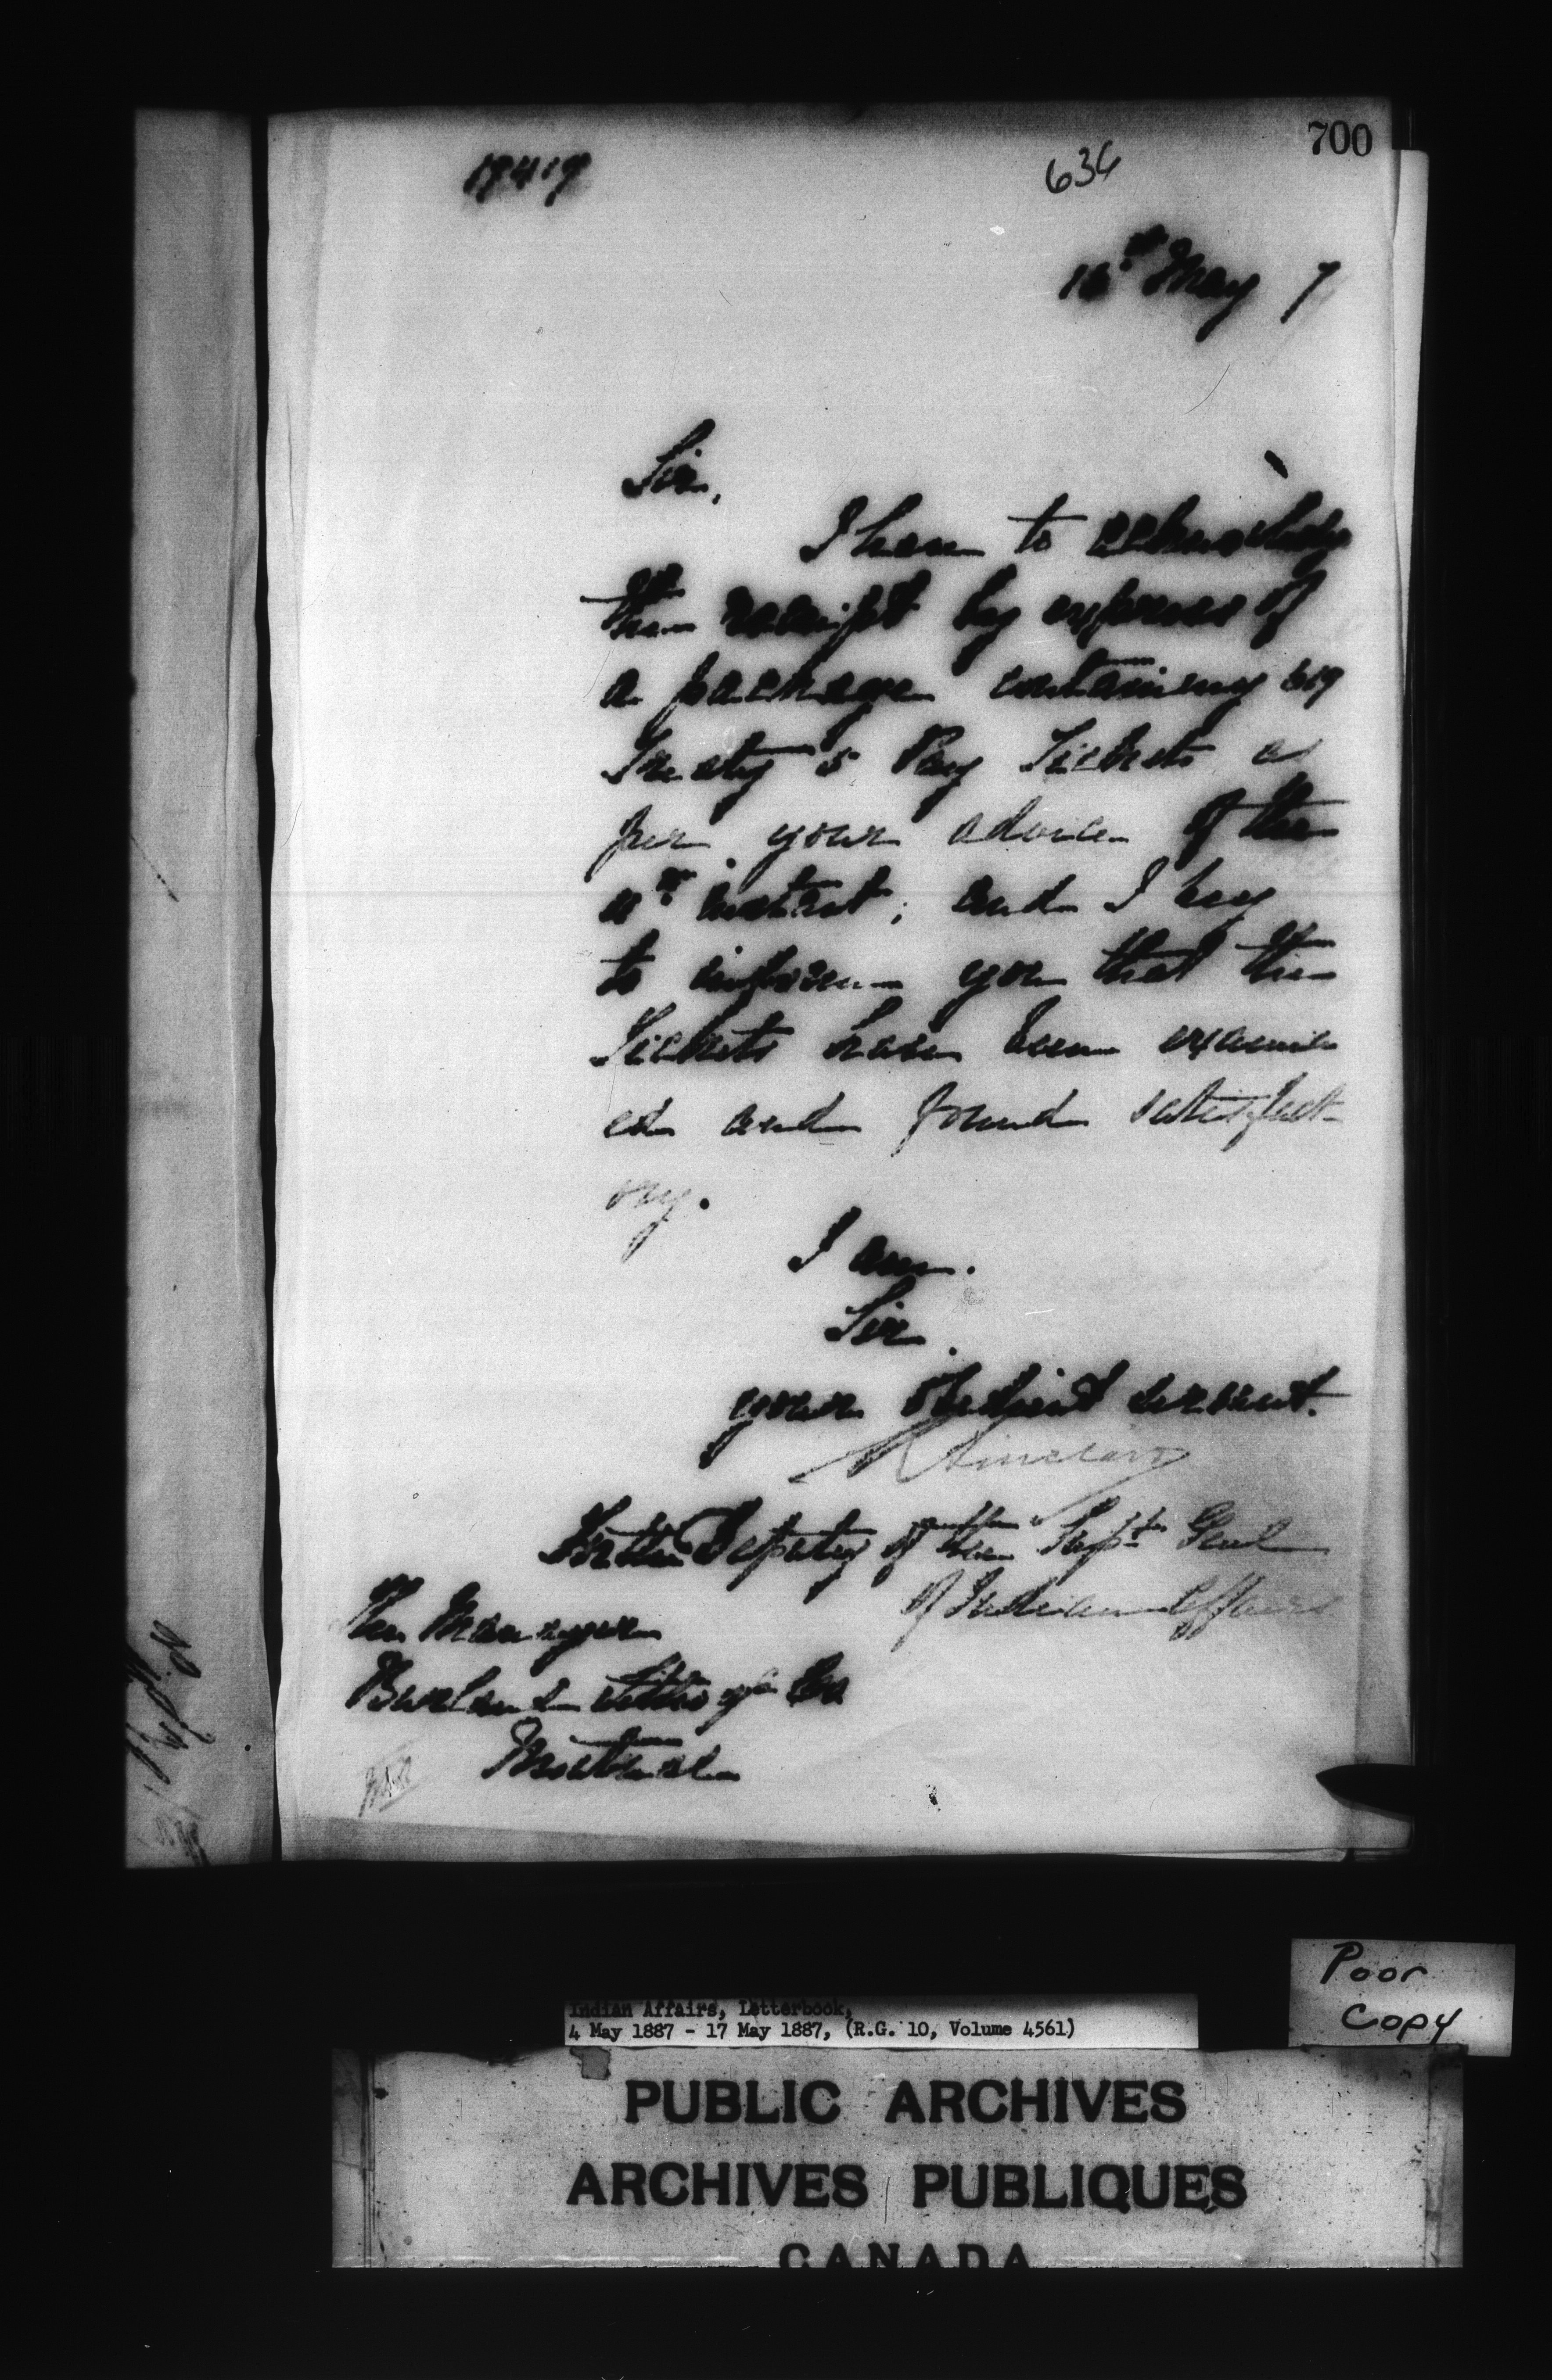 700
17419
636
May 7
Sir,
I have to acknowledge
the receipt by express of
a package containing 619
Treaty 5 Pay Tickets as
per your advice of the
instant; and I beg
to inform you that the
Tickets have been examin
ed and found satisfact-
ory.
I am.
Sir.
your obedient servant.
R Sinclair
for the Deputy of the Supt Genl
of Indian Affairs
The Manager
Burland Litho Co
Montreal
Indian Affairs, Letterbook,
4 May 1887 - 17 May 1887, (R.G. 10, Volume 4561)
Poor
Copy
PUBLIC ARCHIVES
ARCHIVES PUBLIQUES
CANADA